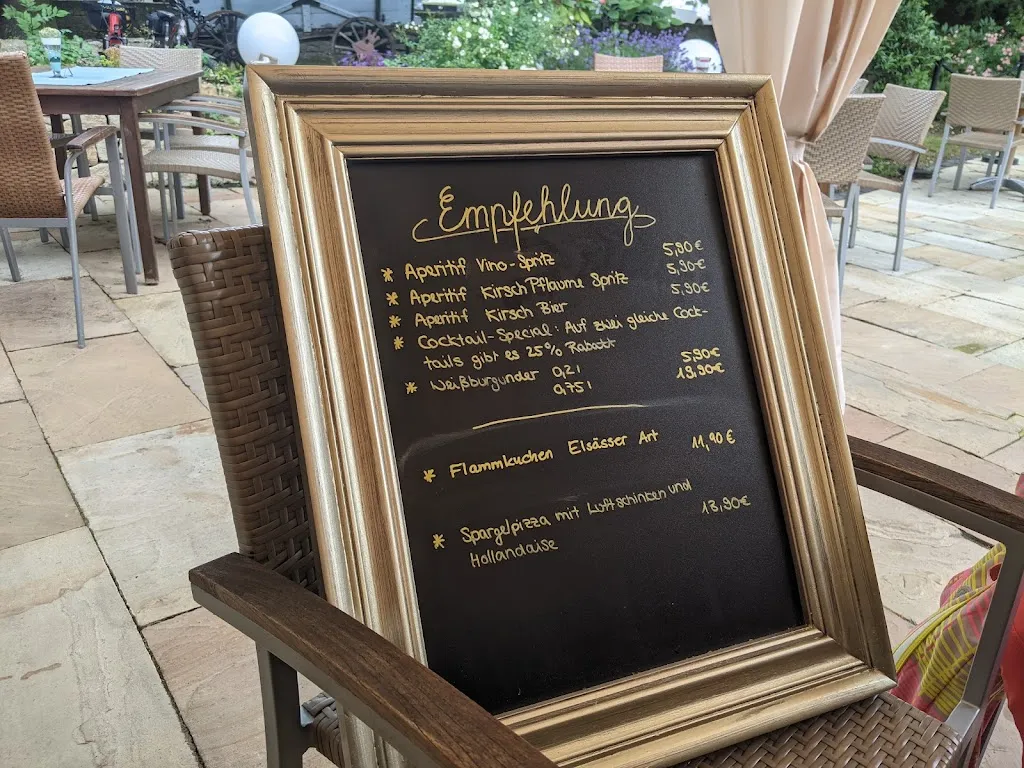 Empfehlung
* Aperitif Vino-Spritz 5,90€
* Aperitif Kirsch Pflaume Spritz 5,90€
* Aperitif Kirsch Bier 5,90€
* Cocktail-Special: Auf zwei gleiche Cock-
tails gibt es 25% Rabatt
* Weißburgunder 0,2l 5,90€
0,75l 19,90€
* Flammkuchen Elsässer Art 11,90€
* Spargelpizza mit Luftschinken und 13,90€
Hollandaise